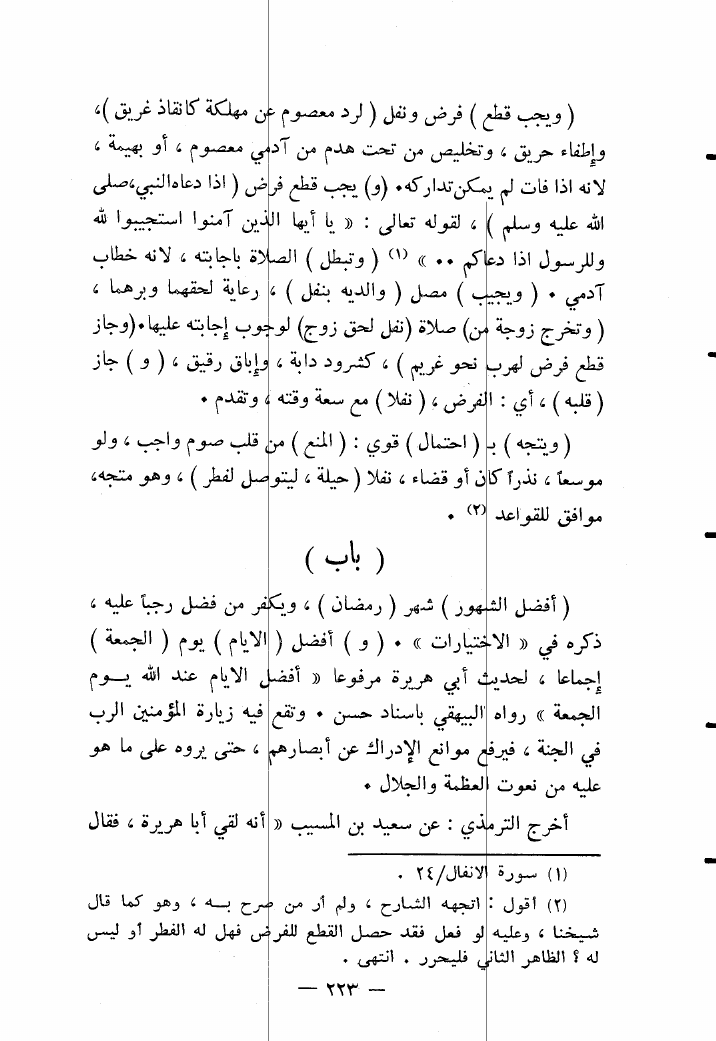 ( ويجب قطع ) فرض ونفل ( لرد معصوم عن مهلكة كانقاذ غريق )،
وإطفاء حريق ، وتخليص من تحت هدم من آدمي معصوم ، أو بهيمة ،
لانه اذا فات لم يمكن تداركه٠ (و) يجب قطع فرض ( اذا دعاه النبي،صلى
الله عليه وسلم ) ، لقوله تعالى : « يا أيها الذين آمنوا استجيبوا لله
وللرسول اذا دعاكم ٠٠ » (١) ( وتبطل ) الصلاة باجابته ، لانه خطاب
آدمي ٠ ( ويجيب ) مصل ( والديه بنفل ) ، رعاية لحقهما وبرهما ،
( وتخرج زوجة من) صلاة (نفل لحق زوج) لوجوب إجابته عليها٠(وجاز
قطع فرض لهرب نحو غريم ) ، كشرود دابة ، وإباق رقيق ، ( و ) جاز
( قلبه ) ، أي : الفرض ، ( نفلا ) مع سعة وقته ، وتقدم ٠
( ويتجه ) بـ ( احتمال ) قوي : ( المنع ) من قلب صوم واجب ، ولو
موسعاً ، نذراً كان أو قضاء ، نفلا ( حيلة ، ليتوصل لفطر ) ، وهو متجه،
موافق للقواعد (٢) ٠
( باب )
( أفضل الشهور ) شهر ( رمضان ) ، ويكفر من فضل رجباً عليه ،
ذكره في « الاختيارات » ٠ ( و ) أفضل ( الايام ) يوم ( الجمعة )
إجماعا ، لحديث أبي هريرة مرفوعا « أفضل الايام عند الله يـــوم
الجمعة » رواه البيهقي باسناد حسن ٠ وتقع فيه زيارة المؤمنين الرب
في الجنة ، فيرفع موانع الإدراك عن أبصارهم ، حتى يروه على ما هو
عليه من نعوت العظمة والجلال ٠
أخرج الترمذي : عن سعيد بن المسيب « أنه لقي أبا هريرة ، فقال
(١) سورة الانفال/٢٤ .
(٢) أقول : اتجهه الشارح ، ولم أر من صرح بـــه ، وهو كما قال
شيخنا ، وعليه لو فعل فقد حصل القطع للفرض فهل له الفطر أو ليس
له ؟ الظاهر الثاني فليحرر . انتهى .
— ٢٢٣ —